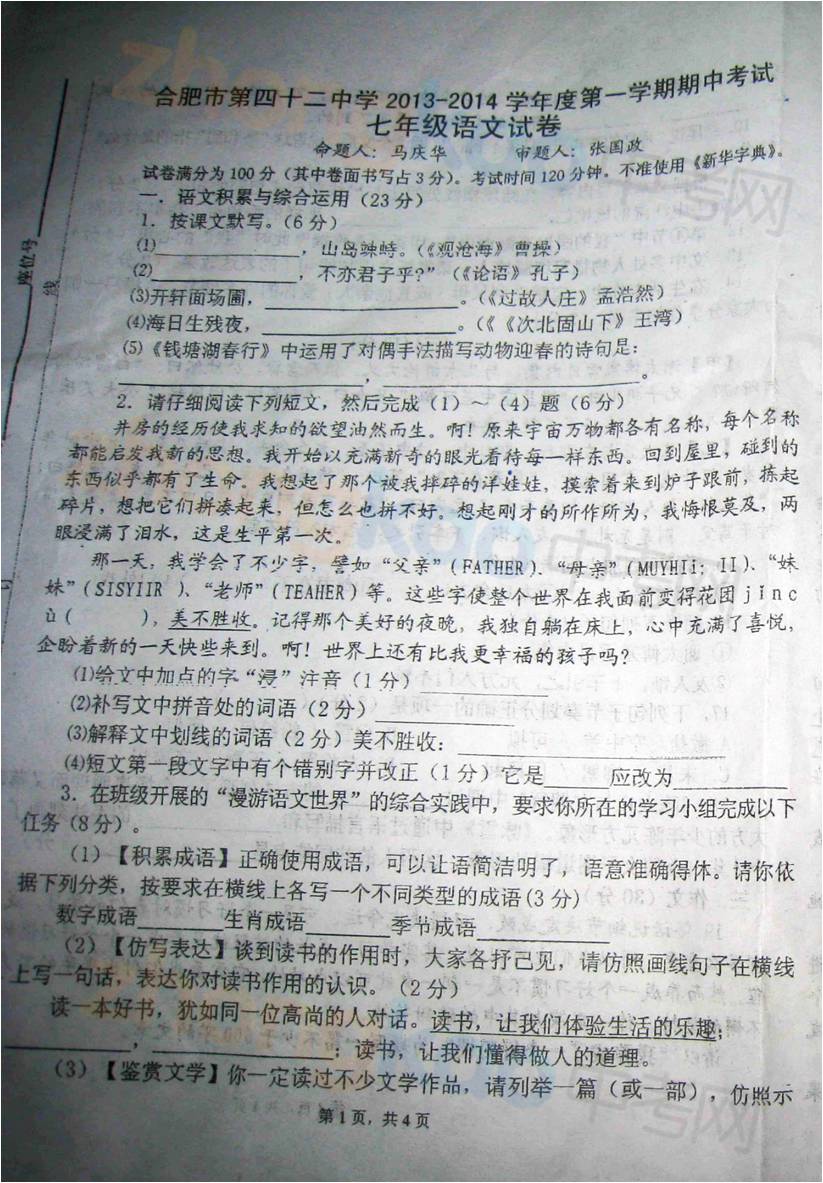 合肥市第四十二中学 2013-2014 学年度第一学期期中考试
七年级语文试卷
命题人：马庆华 审题人：张国政
试卷满分为100分（其中卷面书写占3分）。考试时间120分钟。不准使用《新华字典》。
一．语文积累与综合运用（23分）
1．按课文默写。（6分）
⑴________________，山岛竦峙。（《观沧海》曹操）
⑵________________，不亦君子乎?”（《论语》孔子）
⑶开轩面场圃，________________。（《过故人庄》孟浩然）
⑷海日生残夜，________________。（《《次北固山下》王湾）
⑸《钱塘湖春行》中运用了对偶手法描写动物迎春的诗句是：
________________，________________。
2．请仔细阅读下列短文，然后完成（1）～（4）题（6分）
井房的经历使我求知的欲望油然而生。啊！原来宇宙万物都各有名称，每个名称
都能启发我新的思想。我开始以充满新奇的眼光看待每一样东西。回到屋里，碰到的
东西似乎都有了生命。我想起了那个被我摔碎的洋娃娃，摸索着来到炉子跟前，拣起
碎片，想把它们拼凑起来，但怎么也拼不好。想起刚才的所作所为，我悔恨莫及，两
眼浸满了泪水，这是生平第一次。
那一天，我学会了不少字，譬如“父亲”(FATHER)、“母亲”(MUYHIi; II)、“妹
妹”(SISYIIR )、“老师”(TEAHER)等。这些字使整个世界在我面前变得花团 jǐn c
ù（ ），美不胜收。记得那个美好的夜晚，我独自躺在床上，心中充满了喜悦，
企盼着新的一天快些来到。啊！世界上还有比我更幸福的孩子吗？
⑴给文中加点的字“浸”注音（1分）________________
⑵补写文中拼音处的词语（2分）________________
⑶解释文中划线的词语（2分）美不胜收：________________
⑷短文第一段文字中有个错别字并改正（1分）它是______应改为__________
3．在班级开展的“漫游语文世界”的综合实践中，要求你所在的学习小组完成以下
任务（8分）。
（1）【积累成语】正确使用成语，可以让语简洁明了，语意准确得体。请你依
据下列分类，按要求在横线上各写一个不同类型的成语(3分)
数字成语________生肖成语________季节成语____________
（2）【仿写表达】谈到读书的作用时，大家各抒己见，请仿照画线句子在横线
上写一句话，表达你对读书作用的认识。（2分）
读一本好书，犹如同一位高尚的人对话。读书，让我们体验生活的乐趣；
____________，________________；读书，让我们懂得做人的道理。
（3）【鉴赏文学】你一定读过不少文学作品，请列举一篇（或一部），仿照示
第1页，共4页
座位号
线
中考网